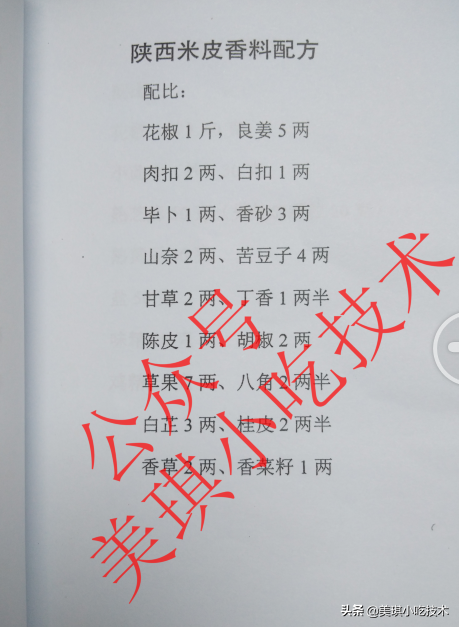 陕西米皮香料配方
配比：
花椒 1 斤，良姜 5 两
肉扣 2 两、白扣 1 两
毕卜 1 两、香砂 3 两
山奈 2 两、苦豆子 4 两
甘草 2 两、丁香 1 两半
陈皮 1 两、胡椒 2 两
草果 7 两、八角 2 两半
白芷 3 两、桂皮 2 两半
香草 2 两、香菜籽 1 两
公众号
美琪小吃技术
头条 @美琪小吃技术